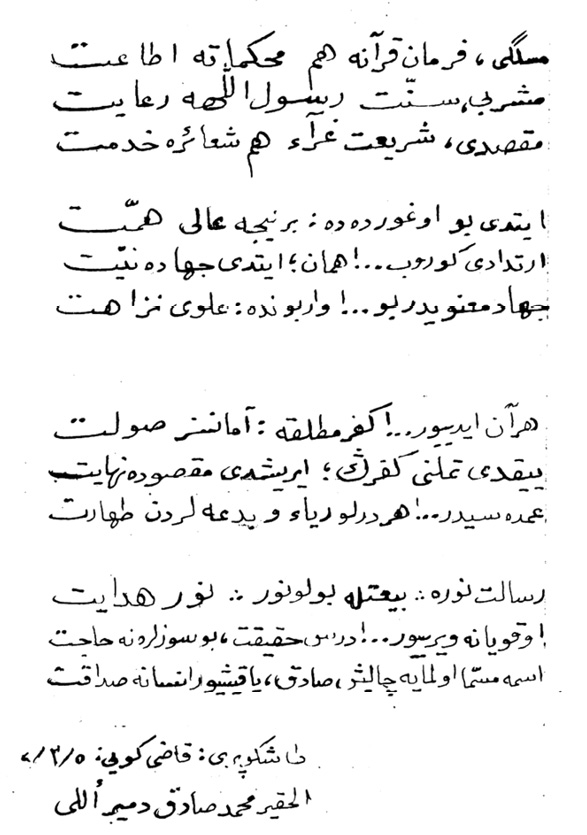 مسلگی، فرمان قرآنه هم محکماته اطاعت
مشربی، سنّت رسول اللّهه رعایت
مقصدی، شریعت غرآء هم شعائره خدمت
ایتدی بو اوغورده ده : برنیجه عالی همّت
ارتدادی کوروب...! همان؛ ایتدی جهاده نیّت
جهاد معنویدر بو...! واربونده : علوی نزاهت
هرآن ایدییور...! کفر مطلقه : آمانسز صولت
ییقدی تملنی کفرڭ؛ ایریشدی مقصوده نهایت
عمده سیدر...! هر درلو ریاء و بدعه لردن طهارت
رسالت نوره :. بیعتله بولونور :. نور هدایت
اوقویانه ویرییور...! درس حقیقت، بو سوزلره نه حاجت
اسمه مسمّا اولمایه چالیش، صادق، یاقیشیور انسانه صداقت
طاشکوپری : قاضی کویی :
الحقیر محمد صادق دمیر أللی